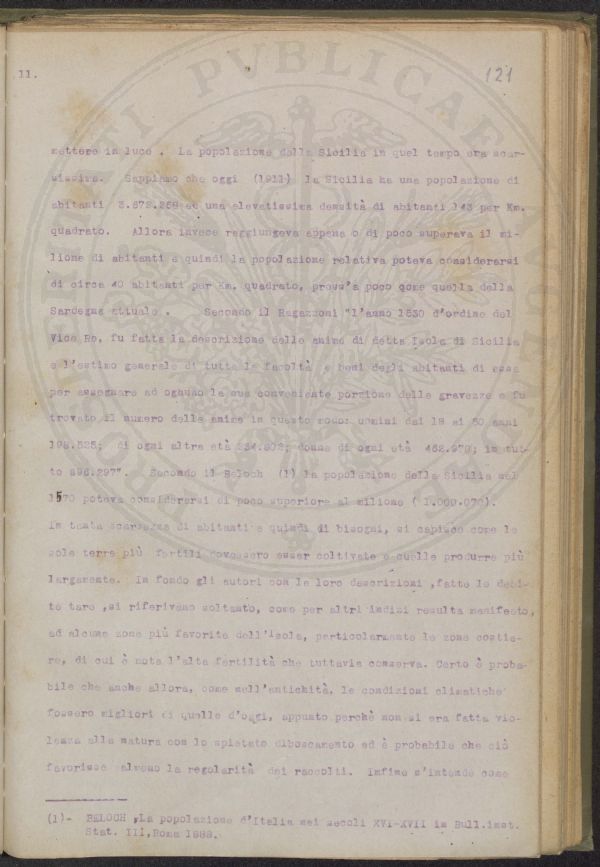 11.
121
mettere in luce . La popolazione della Sicilia in quel tempo era scar-
sissima. Sappiamo che oggi (1911) la Sicilia ha una popolazione di
abitanti 3.672.258 ed una elevatissima densità di abitanti 143 per Km.
quadrato. Allora invece raggiungeva appena o di poco superava il mi-
lione di abitanti e quindi la popolazione relativa poteva considerarsi
di circa 40 abitanti per Km. quadrato, press'a poco come quella della
Sardegna attuale . Secondo il Ragazzoni "l'anno 1530 d'ordine del
Vice Re, fu fatta la descrizione delle anime di detta Isola di Sicilia
e l'estimo generale di tutte le facoltà e beni degli abitanti di essa
per assegnare ad ognuno la sua conveniente porzione delle gravezze e fu
trovato il numero delle anime in questo modo: uomini dai 18 ai 50 anni
198.525; di ogni altra età 234.802; donne di ogni età 462.970; in tut-
to 896.297". Secondo il Beloch (1) la popolazione della Sicilia nel
1570 poteva considerarsi di poco superiore al milione ( 1.000.070).
In tanta scarsezza di abitanti e quindi di bisogni, si capisce come le
sole terre più fertili dovessero esser coltivate e quelle produrre più
largamente. In fondo gli autori con le loro descrizioni ,fatte le debi-
te tare ,si riferivano soltanto, come per altri indizi resulta manifesto,
ad alcune zone più favorite dell'isola, particolarmente le zone costie-
re, di cui è nota l'alta fertilità che tuttavia conserva. Certo è proba-
bile che anche allora, come nell'antichità, le condizioni climatiche
fossero migliori di quelle d'oggi, appunto perchè non si era fatta vio-
lenza alla natura con lo spietato diboscamento ed è probabile che ciò
favorisse almeno la regolarità dei raccolti. Infine s'intende come
(1)- BELOCH ,La popolazione d'Italia nei secoli XVI-XVII in Bull.inst.
Stat. III,Roma 1888.